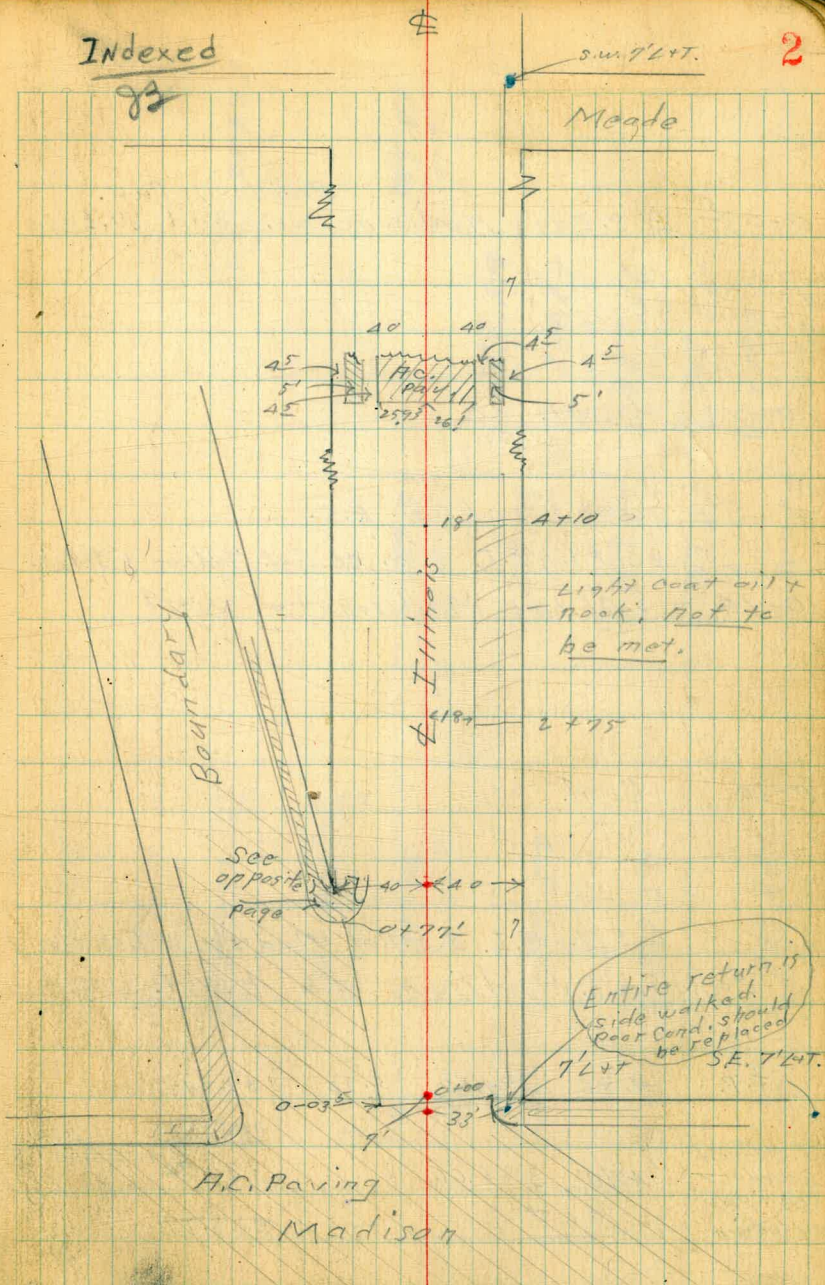 ℄
Indexed
2
S.W. 7' L+T.
Meade
7
40 40
4⁵
4⁵
5'
4⁵
A.C.
Pav.
4⁵
5'
25.95 26'
18' 4+10
Light coat oil +
Rock, not to
be met.
℄ Illinois
Boundary
18 2+75
See
opposite
page
40 40
0+77'
7
Entire return is
side walked.
Poor Cond. should
be replaced
7' L+T
S.E. 7' L+T.
0-03⁵
0+00
33'
7'
A.C. Paving
Madison